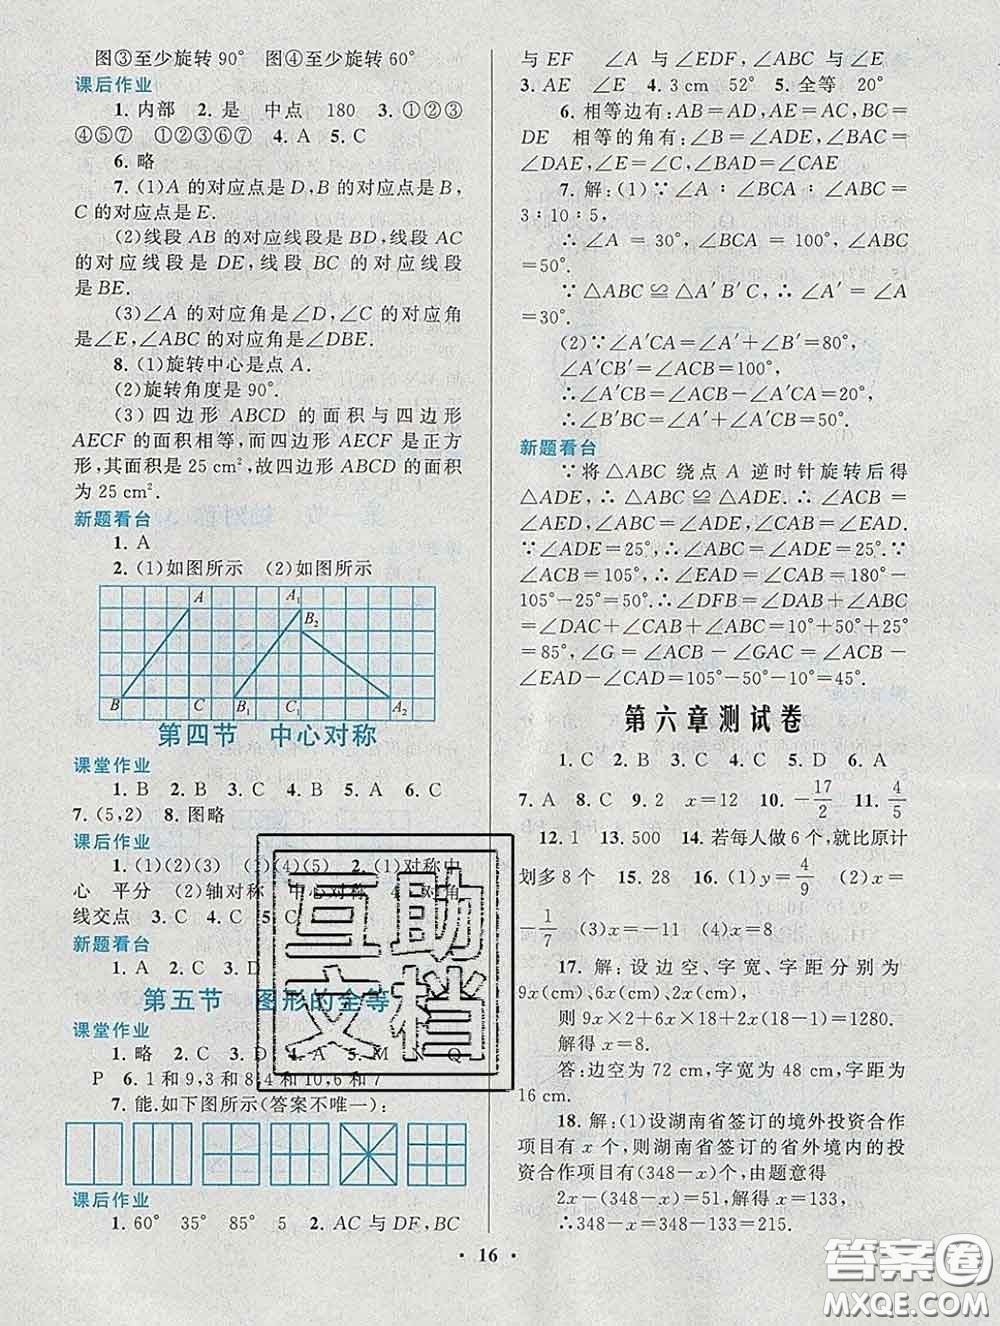 图③至少旋转90°　图④至少旋转60°
课后作业
1. 内部　2. 是　中点　180　3. ①②③
④⑤⑦　①②③⑥⑦　4. A　5. C
6. 略
7. (1)A 的对应点是D,B 的对应点是B,
C的对应点是E.
(2)线段 AB 的对应线段是 BD,线段 AC
的对应线段是 DE,线段 BC 的对应线段
是BE.
(3)∠A 的对应角是∠D,∠C 的对应角
是∠E,∠ABC 的对应角是∠DBE.
8. (1)旋转中心是点 A.
(2)旋转角度是 90°.
(3)四边形 ABCD 的面积与四边形
AECF的面积相等,而四边形 AECF 是正方
形,其面积是 25 cm²,故四边形 ABCD 的面积
为 25 cm².
新题看台
1. A
2. (1)如图所示　(2)如图所示
A　A₁　B₂
B　C　B₁　C₁　A₂
第四节　中心对称
课堂作业
1. B　2. B　3. C　4. A　5. B　6. C
7. (5,2)　8. 图略
课后作业
1. (1)(2)(3)　(3)(4)(5)　2. (1)对称中
心　平分　(2)轴对称　中心对称　对角
线交点　3. C　4. C　5. C
新题看台
1. A　2. C　3. D
第五节　图形的全等
课堂作业
1. 略　2. C　3. D　4. A　5. M　N　Q
P　6. 1 和 9,3 和 8,4 和 10,6 和 7
7. 能. 如下图所示(答案不唯一):
课后作业
1. 60°　35°　85°　5　2. AC 与 DF,BC
与 EF　∠A 与 ∠EDF,∠ABC 与 ∠E
3. AE　∠E　4. 3 cm　52°　5. 全等　20°
6. 相等边有:AB=AD,AE=AC,BC=
DE　相等的角有:∠B=∠ADE,∠BAC=
∠DAE,∠E=∠C,∠BAD=∠CAE
7. 解:(1)∵∠A∶∠BCA∶∠ABC=
3∶10∶5,
∴∠A=30°,∠BCA=100°,∠ABC
=50°.
∵△ABC≌△A′B′C,∴∠A′=∠A
=30°.
(2)∵∠A′CA=∠A′+∠B′=80°,
∠A′CB′=∠ACB=100°,
∴∠A′CB=∠ACB-∠A′CA=20°,
∴∠B′BC=∠A′+∠A′CB=50°.
新题看台
∵将△ABC 绕点 A 逆时针旋转后得
△ADE,∴△ABC≌△ADE.∴∠ACB=
∠AED,∠ABC=∠ADE,∠CAB=∠EAD.
∵∠ADE=25°,∴∠ABC=∠ADE=25°.∵
∠ACB=105°,∴∠EAD=∠CAB=180°-
105°-25°=50°.∴∠DFB=∠DAB+∠ABC
=∠DAC+∠CAB+∠ABC=10°+50°+25°
=85°,∠G=∠ACB-∠GAC=∠ACB-
∠EAD-∠CAD=105°-50°-10°=45°.
第六章测试卷
1. C　2. B　3. C　4. C　5. D　6. A
7. A　8. C　9. 2　x=1　10. -17/2　11. 4/5
12. 1　13. 500　14. 若每人做 6 个,就比原计
划多 8 个　15. 28　16. (1)y=4/9　(2)x=
-1/7　(3)x=-11　(4)x=8
17. 解:设边空、字宽、字距分别为
9x(cm),6x(cm),2x(cm),
则 9x×2+6x×18+2x×17=1280.
解得 x=8.
答:边空为 72 cm,字宽为 48 cm,字距为
16 cm.
18. 解:(1)设湖南省签订的境外投资合作
项目有 x 个,则湖南省签订的省外境内的投
资合作项目有(348-x)个,由题意得
2x-(348-x)=51,解得 x=133,
∴348-x=348-133=215.
• 16 •
互助
文档
答案圈
MXQE.COM